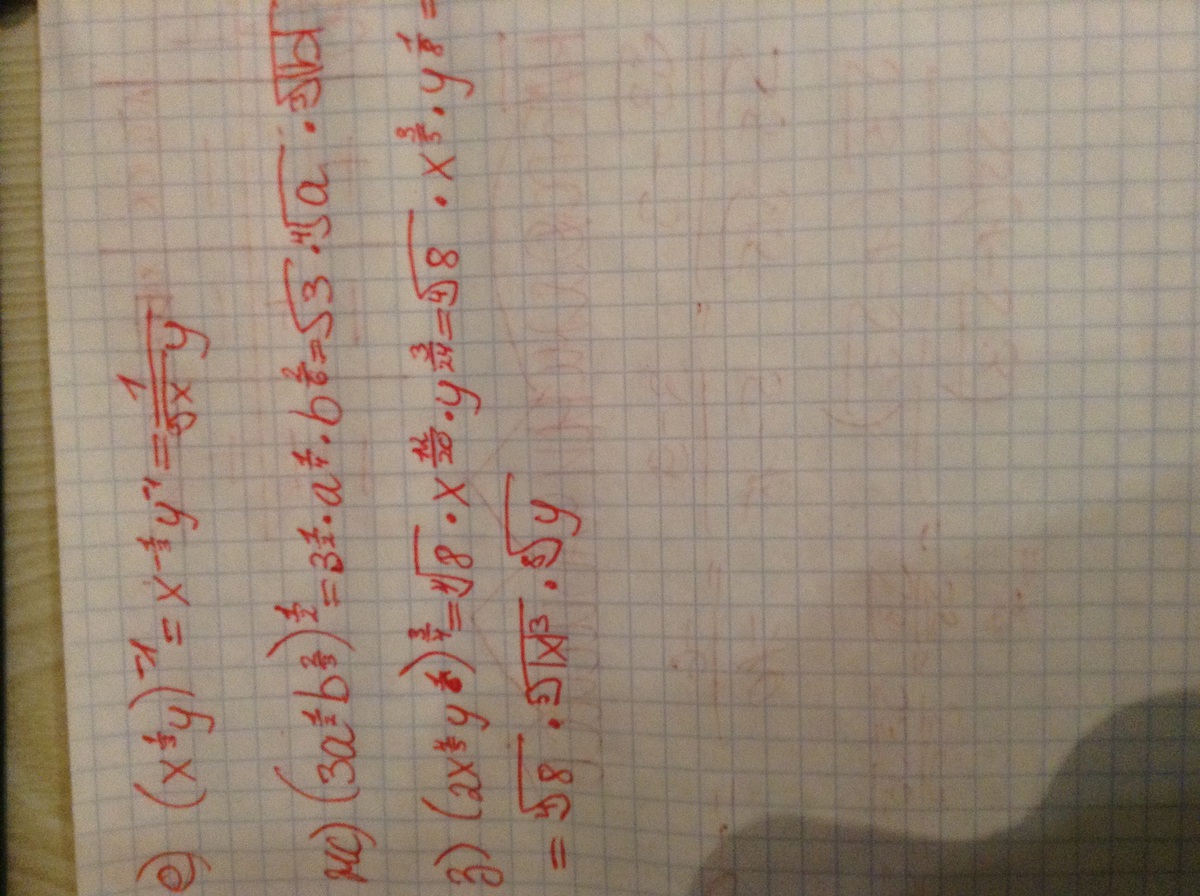 е) (x^{1/3}y)^{-1} = x^{-1/3}y^{-1} = 1/(∛x y)
ж) (3a^{1/2}b^{2/3})^{1/2} = 3^{1/2}·a^{1/4}·b^{2/6} = √3·⁴√a·∛|b|
з) (2x^{4/5}y^{1/6})^{3/4} = ⁴√8·x^{12/20}·y^{3/24} = ⁴√8·x^{3/5}·y^{1/8} =
= ⁴√8·⁵√|x|³·⁸√y